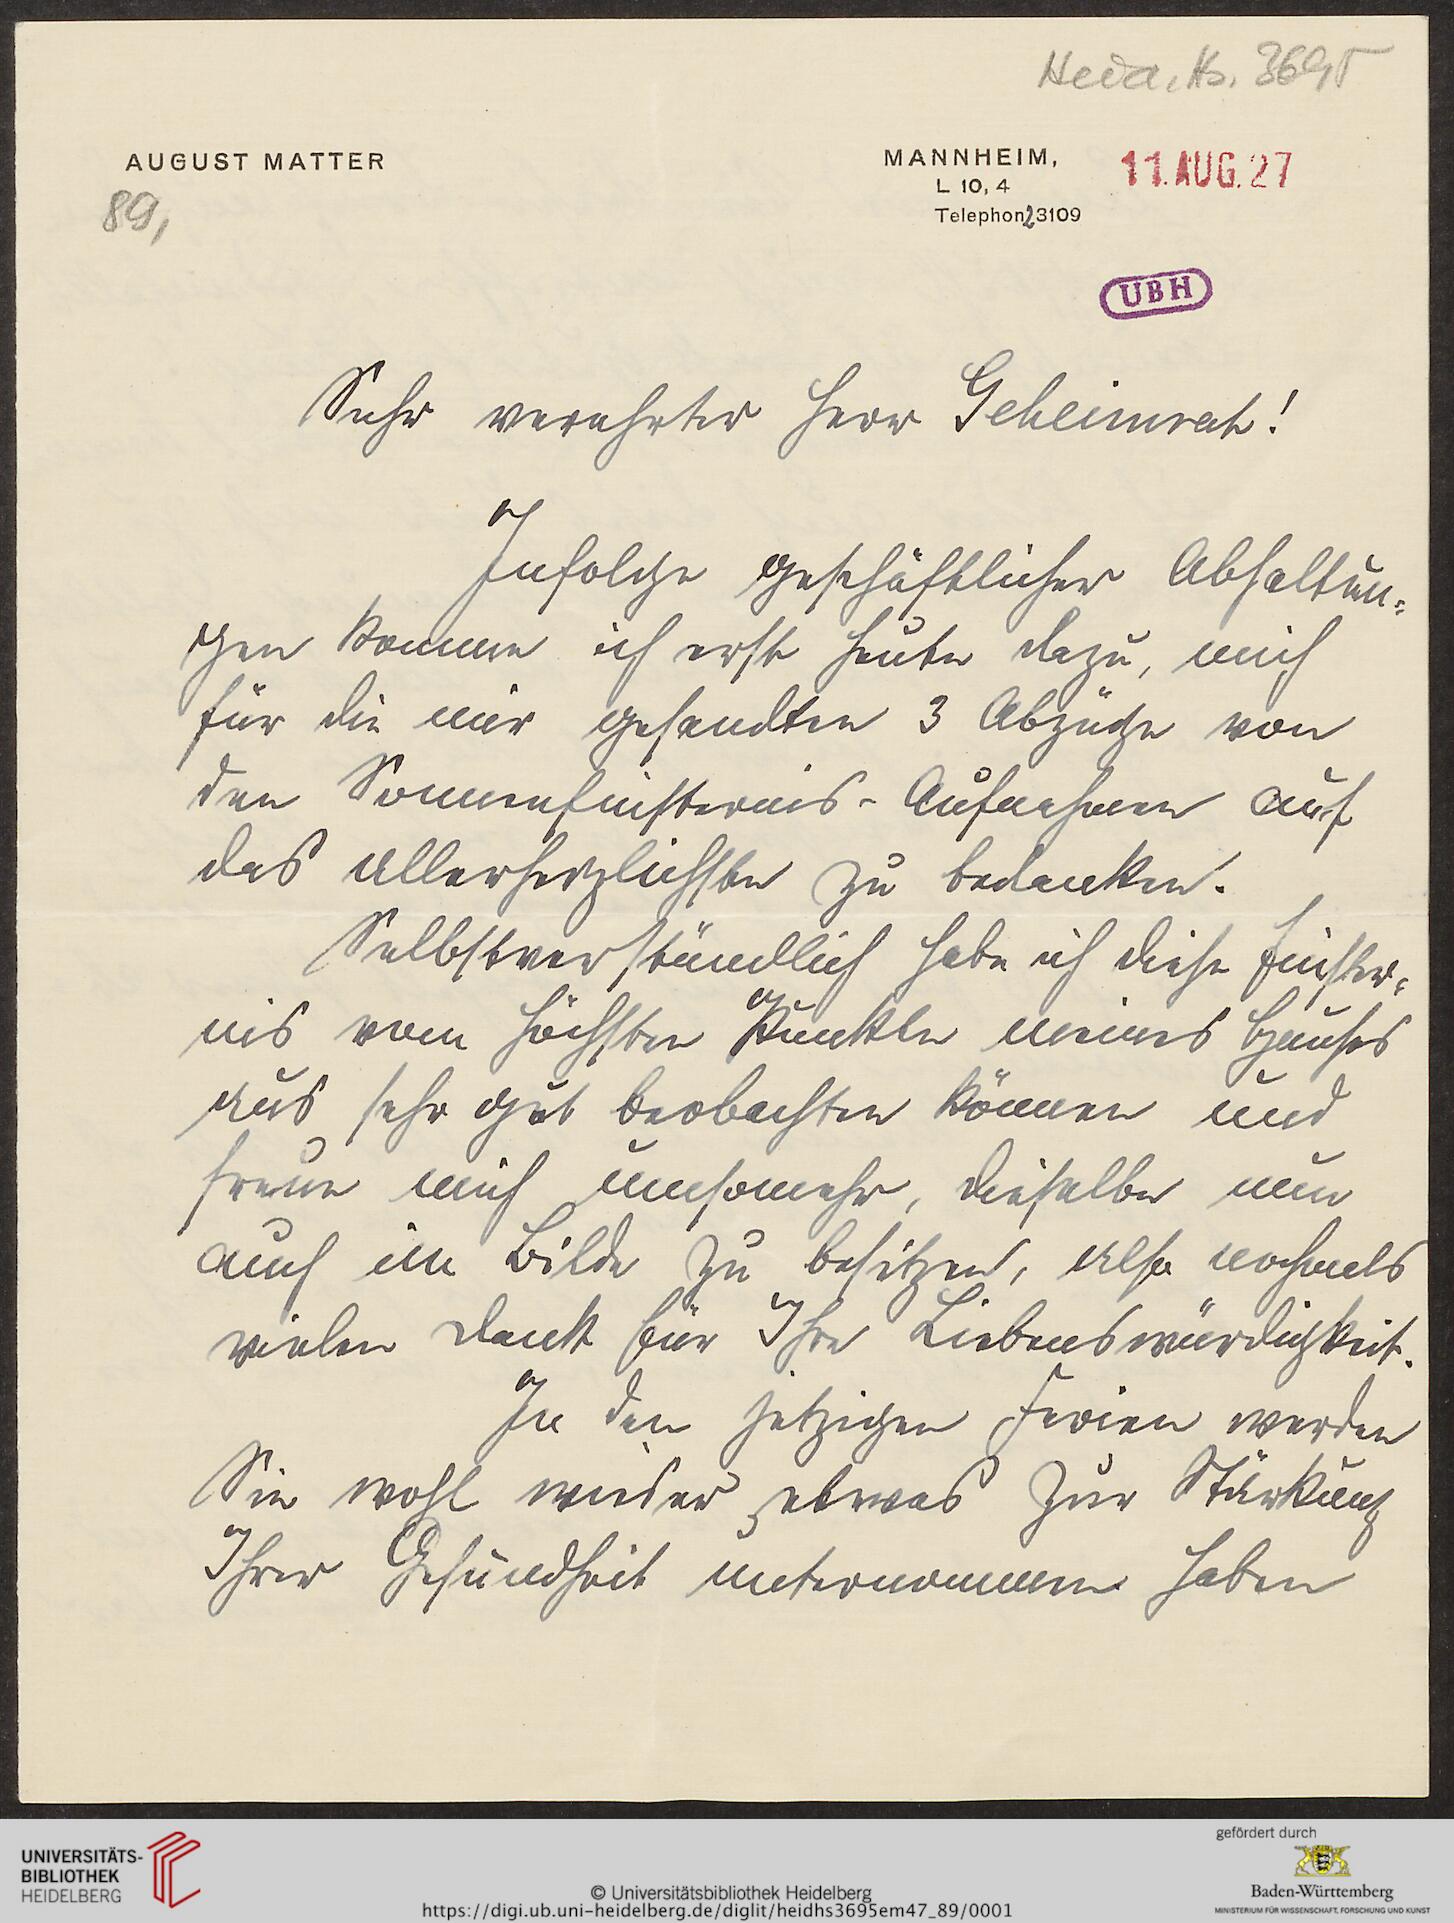 Heid. Hs. 3695
AUGUST MATTER
MANNHEIM,
11. AUG. 27
L 10, 4
89,
Telephon 23109
UBH
Sehr verehrter Herr Geheimrat!
Infolge geschäftlicher Abhaltun-
gen komme ich erst heute dazu, mich
für die mir gesandten 3 Abzüge von
den Sonnenfinsternis-Aufnahmen auf
das allerherzlichste zu bedanken.
Selbstverständlich habe ich diese Finster-
nis vom höchsten Punkte meines Hauses
aus sehr gut beobachten können und
freue mich umsomehr, dieselbe nun
auch im Bilde zu besitzen, also nochmals
vielen Dank für Ihre Liebenswürdigkeit.
In den jetzigen Ferien werden
Sie wohl wieder etwas zur Stärkung
Ihrer Gesundheit unternommen haben
UNIVERSITÄTS-
BIBLIOTHEK
HEIDELBERG
© Universitätsbibliothek Heidelberg
https://digi.ub.uni-heidelberg.de/diglit/heidhs3695em47_89/0001
gefördert durch
Baden-Württemberg
MINISTERIUM FÜR WISSENSCHAFT, FORSCHUNG UND KUNST